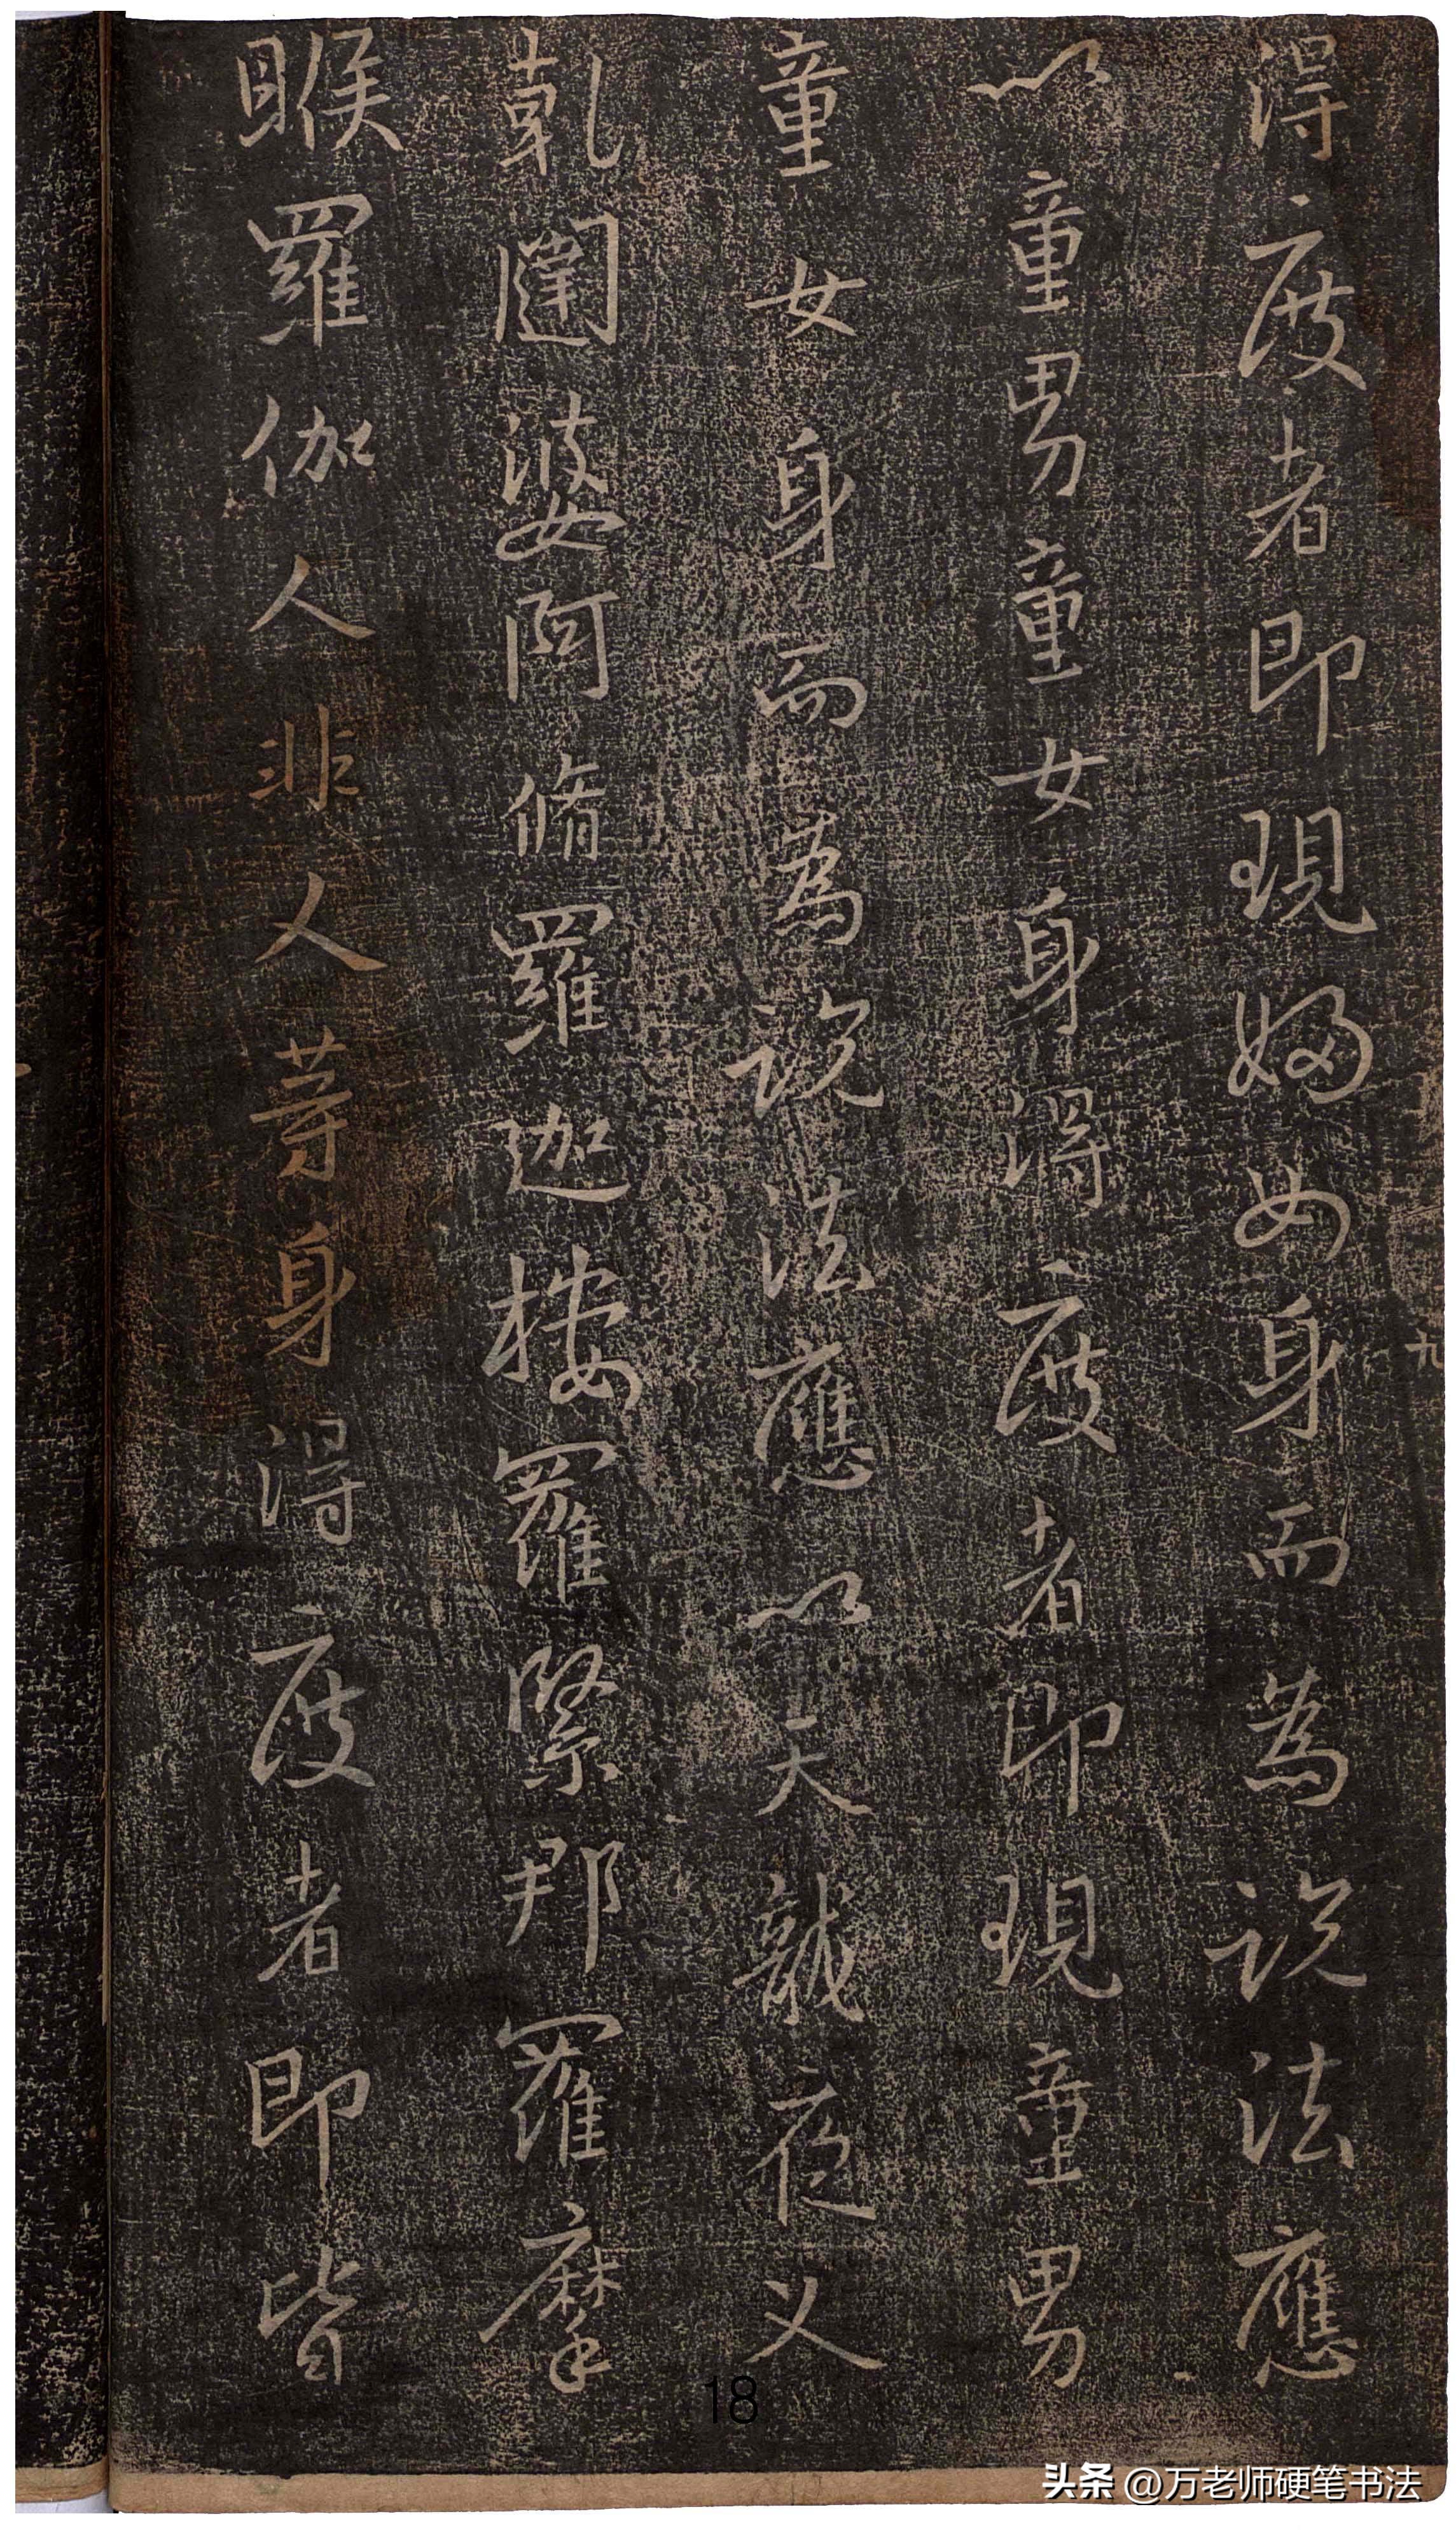 得度者即現婦女身而為説法應
以童男童女身得度者即現童男
童女身而為説法應以天龍夜叉
乾闥婆阿脩羅迦楼羅緊那羅摩
睺羅伽人非人等身得度者即皆
九
18
头条 @万老师硬笔书法